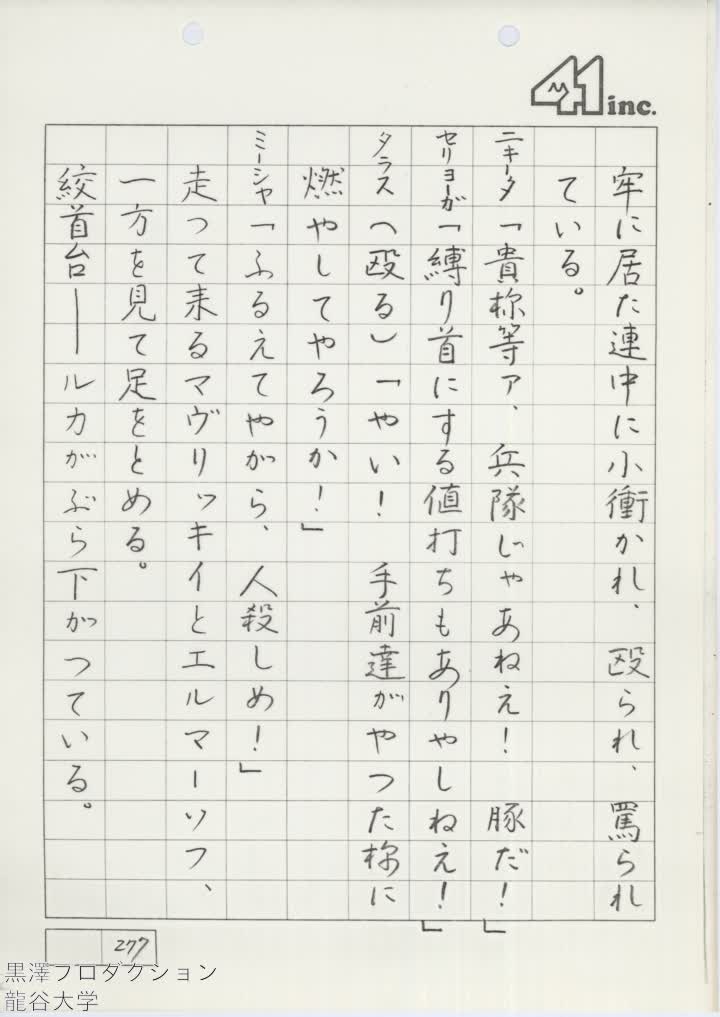 41 inc.
牢に居た連中に小衝かれ、殴られ、罵られ
ている。
ニキータ「貴様等ァ、兵隊じゃあねえ！豚だ！」
セリョーガ「縛り首にする値打ちもありやしねえ！」
タラス（殴る）「やい！手前達がやつた様に
燃やしてやろうか！」
ミーシャ「ふるえてやがら、人殺しめ！」
走つて来るマヴリッキイとエルマーソフ、
一方を見て足をとめる。
絞首台――ルカがぶら下がつている。
277
黒澤プロダクション
龍谷大学